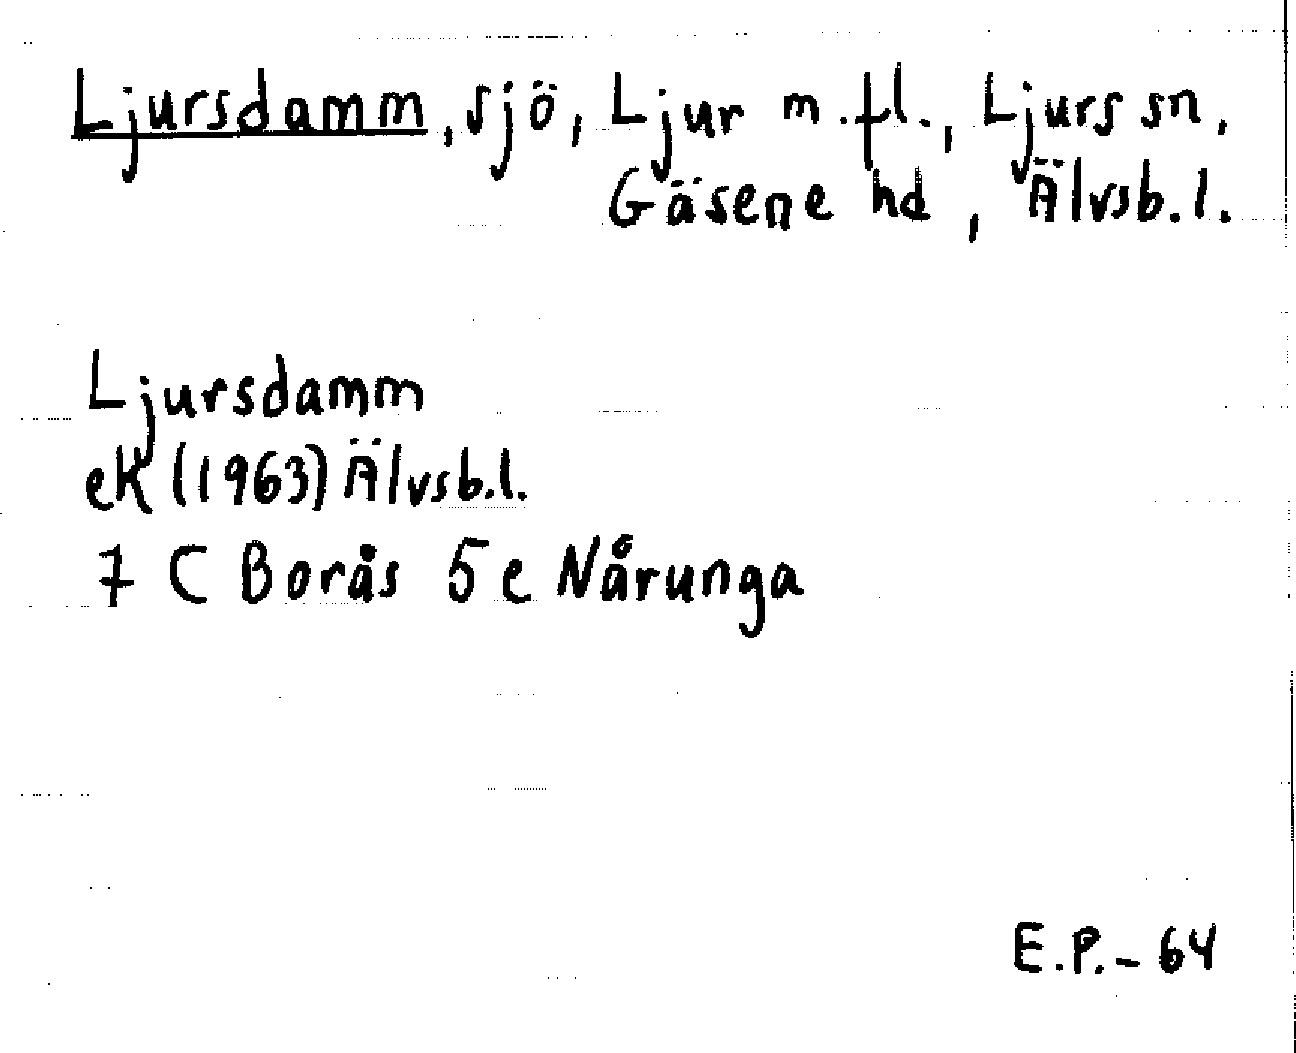 Ljursdamm, sjö, Ljur m.fl., Ljurs sn,
Gäsene hd, Älvsb.l.
Ljursdamm
eK (1963) Älvsb.l.
7 C Borås 5e Nårunga
E.P.-64